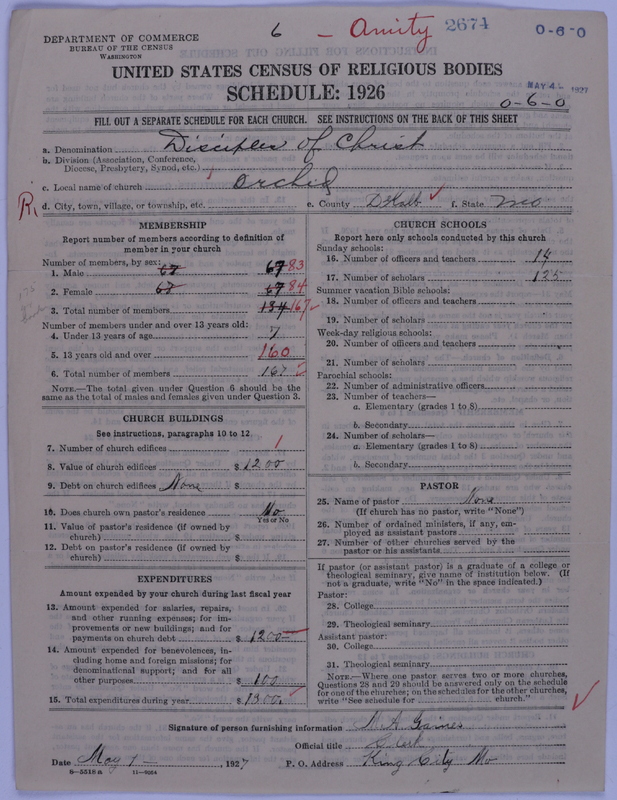 6 - Amity 2674 0-6-0
DEPARTMENT OF COMMERCE
BUREAU OF THE CENSUS
WASHINGTON
UNITED STATES CENSUS OF RELIGIOUS BODIES
SCHEDULE: 1926
MAY 4- 1927
0-6-0
FILL OUT A SEPARATE SCHEDULE FOR EACH CHURCH. SEE INSTRUCTIONS ON THE BACK OF THIS SHEET
a. Denomination Disciples of Christ
b. Division (Association, Conference,
Diocese, Presbytery, Synod, etc.)
c. Local name of church Orchid
R. d. City, town, village, or township, etc. e. County DeKalb f. State Mo
MEMBERSHIP
Report number of members according to definition of
member in your church
Number of members, by sex:
1. Male 67 67 83
2. Female 67 67 84
3. Total number of members 134 167
Number of members under and over 13 years old:
4. Under 13 years of age 7
5. 13 years old and over 160
6. Total number of members 167
NOTE.—The total given under Question 6 should be the
same as the total of males and females given under Question 3.
CHURCH BUILDINGS
See instructions, paragraphs 10 to 12
7. Number of church edifices 1
8. Value of church edifices $ 1200
9. Debt on church edifices None $
10. Does church own pastor's residence No
Yes or No
11. Value of pastor's residence (if owned by
church) $
12. Debt on pastor's residence (if owned by
church) $
EXPENDITURES
Amount expended by your church during last fiscal year
13. Amount expended for salaries, repairs,
and other running expenses; for im-
provements or new buildings; and for
payments on church debt $ 1200
14. Amount expended for benevolences, in-
cluding home and foreign missions; for
denominational support; and for all
other purposes $ 100
15. Total expenditures during year $ 1300
CHURCH SCHOOLS
Report here only schools conducted by this church
Sunday schools:
16. Number of officers and teachers 14
17. Number of scholars 125
Summer vacation Bible schools:
18. Number of officers and teachers
19. Number of scholars
Week-day religious schools:
20. Number of officers and teachers
21. Number of scholars
Parochial schools:
22. Number of administrative officers
23. Number of teachers—
a. Elementary (grades 1 to 8)
b. Secondary
24. Number of scholars—
a. Elementary (grades 1 to 8)
b. Secondary
PASTOR
25. Name of pastor None
(If church has no pastor, write "None")
26. Number of ordained ministers, if any, em-
ployed as assistant pastors
27. Number of other churches served by the
pastor or his assistants
If pastor (or assistant pastor) is a graduate of a college or
theological seminary, give name of institution below. (If
not a graduate, write "No" in the space indicated.)
Pastor:
28. College
29. Theological seminary
Assistant pastor:
30. College
31. Theological seminary
NOTE.—Where one pastor serves two or more churches,
Questions 28 and 29 should be answered only on the schedule
for one of the churches; on the schedules for the other churches,
write "See schedule for church."
Signature of person furnishing information Gaines
Official title Clerk
Date May 1 , 1927 P. O. Address King City Mo
8-5518 a 11-9264